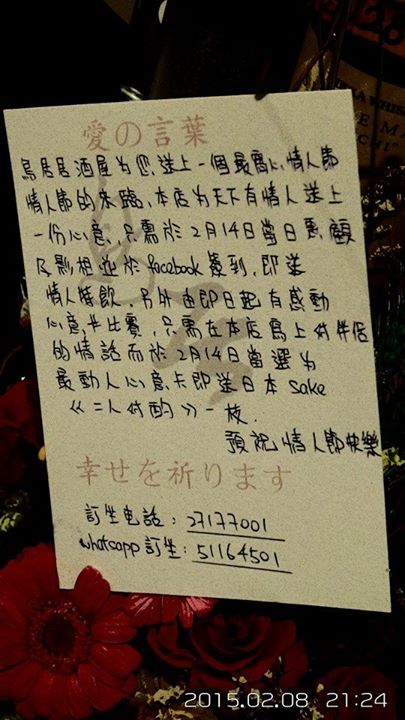 愛の言葉
鳥居居酒屋為您送上一個最窩心情人節
情人節的來臨,本店為天下有情人送上
一份心意,只需於2月14日當日惠顧
及影相並於facebook簽到,即送
情人餐飲.另外由即日起有感動
心意卡比賽,只需在本店寫上對伴侶
的情話而於2月14日當選為
最動人心意卡即送日本 sake
《二人对酌》一枝.
預祝情人節快樂
幸せを祈ります
訂坐电話: 27177001
whatsapp 訂坐: 51164501
2015.02.08 21:24